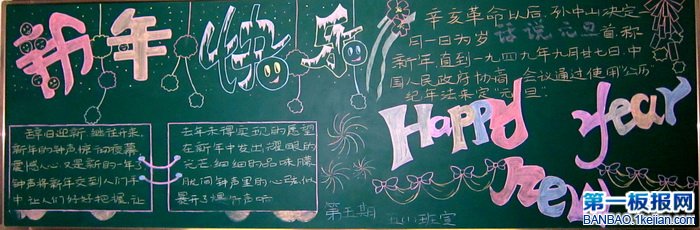 新年快乐
辛亥革命以后,孙中山决定
月一日为岁 话说元旦 首称
新年,直到一九四九年九月廿七日,中
国人民政府协商 会议通过使用"公历
纪年法来定"元旦"
Happy year
new
辞旧迎新,继往开来,
新年的钟声惊动夜幕
震憾人心,又是新的一年了
钟声将新年交到人们手
中让人们好好把握,让
去年未得实现的愿望
在新年中发出耀眼的
光芒,细细的品味朦
胧间钟声里的心弦,似
第五期
第一板报网
BANBAO.1kejian.com